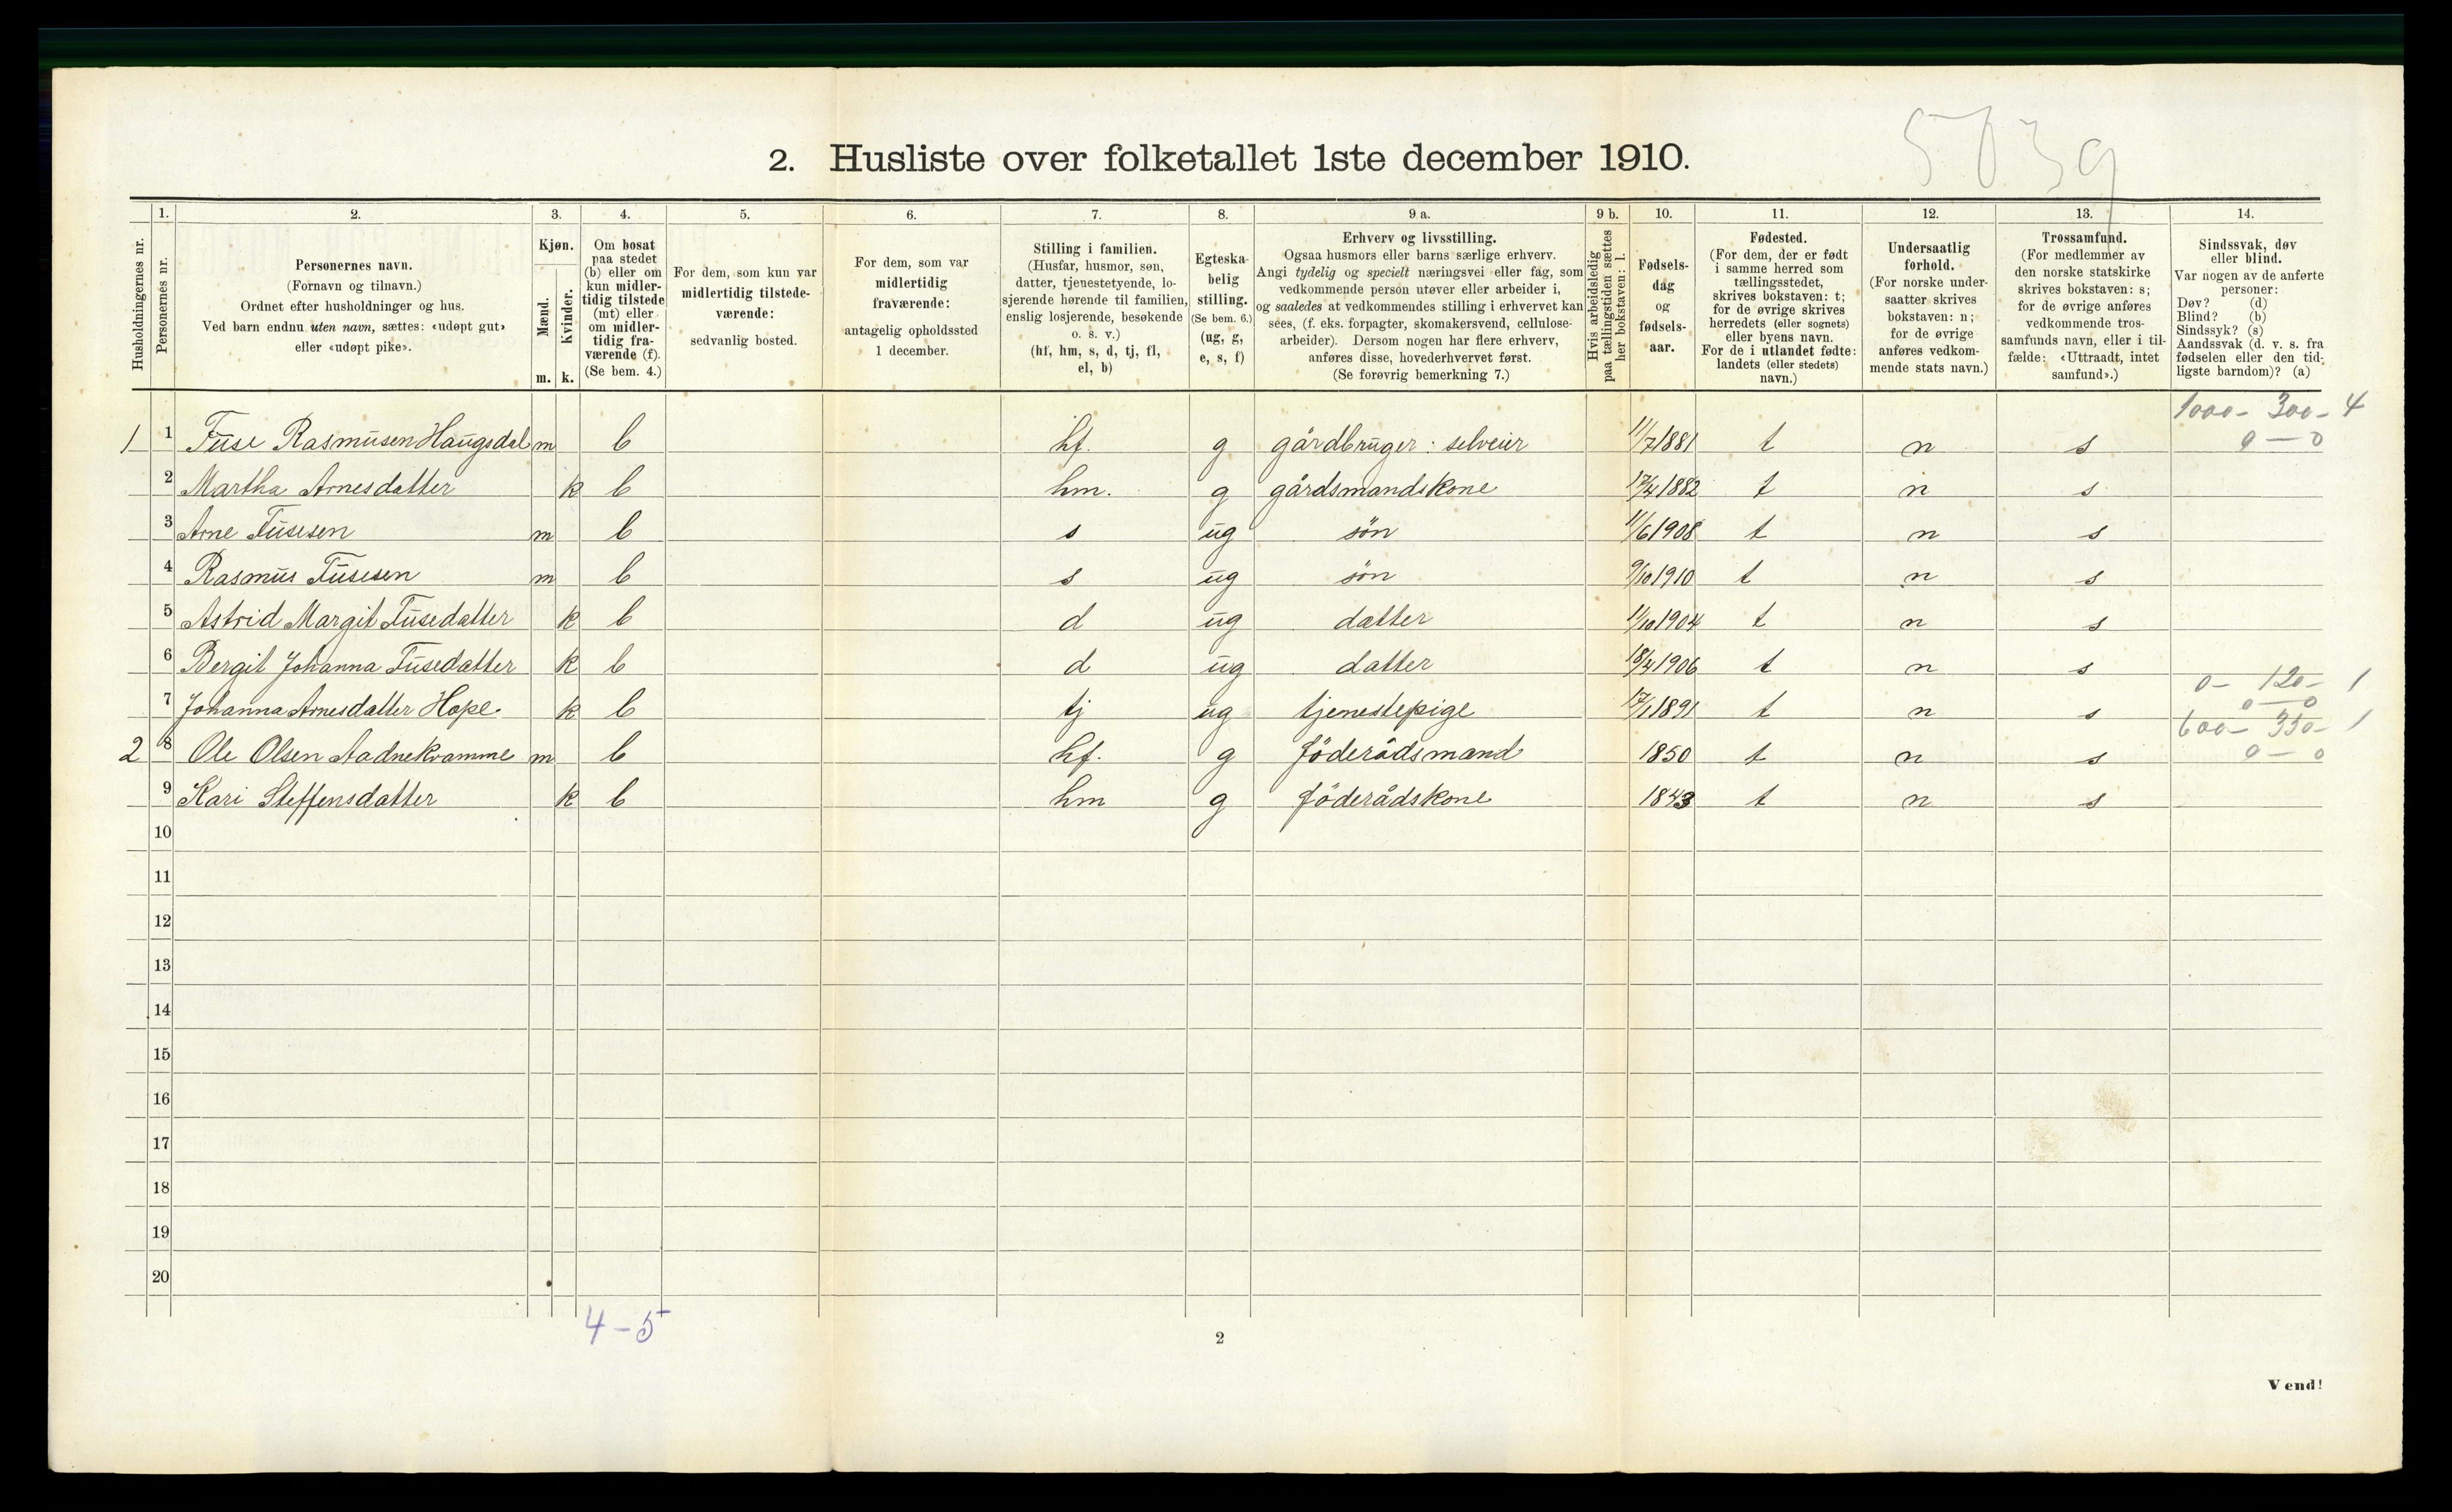 5039
2. Husliste over folketallet 1ste december 1910.
Husholdningernes nr.
1. Personernes nr.
2. Personernes navn.
(Fornavn og tilnavn.)
Ordnet efter husholdninger og hus.
Ved barn endnu uten navn, sættes: «udøpt gut»
eller «udøpt pike».
3. Kjøn.
Mænd. Kvinder.
m. k.
4. Om bosat
paa stedet
(b) eller om
kun midler-
tidig tilstede
(mt) eller
om midler-
tidig fra-
værende (f).
(Se bem. 4.)
5. For dem, som kun var
midlertidig tilstede-
værende:
sedvanlig bosted.
6. For dem, som var
midlertidig
fraværende:
antagelig opholdssted
1 december.
7. Stilling i familien.
(Husfar, husmor, søn,
datter, tjenestetyende, lo-
sjerende hørende til familien,
enslig losjerende, besøkende
o. s. v.)
(hf, hm, s, d, tj, fl,
el, b)
8. Egteska-
belig
stilling.
(Se bem. 6.)
(ug, g,
e, s, f)
9 a. Erhverv og livsstilling.
Ogsaa husmors eller barns særlige erhverv.
Angi tydelig og specielt næringsvei eller fag, som
vedkommende person utøver eller arbeider i,
og saaledes at vedkommendes stilling i erhvervet kan
sees, (f. eks. forpagter, skomakersvend, cellulose-
arbeider). Dersom nogen har flere erhverv,
anføres disse, hovederhvervet først.
(Se forøvrig bemerkning 7.)
9 b. Hvis arbeidsledig
paa tællingstiden sættes
her bokstaven: l.
10. Fødsels-
dag
og
fødsels-
aar.
11. Fødested.
(For dem, der er født
i samme herred som
tællingsstedet,
skrives bokstaven: t;
for de øvrige skrives
herredets (eller sognets)
eller byens navn.
For de i utlandet fødte:
landets (eller stedets)
navn.)
12. Undersaatlig
forhold.
(For norske under-
saatter skrives
bokstaven: n;
for de øvrige
anføres vedkom-
mende stats navn.)
13. Trossamfund.
(For medlemmer av
den norske statskirke
skrives bokstaven: s;
for de øvrige anføres
vedkommende tros-
samfunds navn, eller i til-
fælde: «Uttraadt, intet
samfund».)
14. Sindssvak, døv
eller blind.
Var nogen av de anførte
personer:
Døv? (d)
Blind? (b)
Sindssyk? (s)
Aandssvak (d. v. s. fra
fødselen eller den tid-
ligste barndom)? (a)
1000 - 300 - 4
1 1 Fuse Rasmusen Haugsdal m b hf. g gårdbruger: selveier 11/7 1881 t n s 0 — 0
2 Martha Arnesdatter k b hm. g gårdsmandskone 17/4 1882 t n s
3 Arne Fusesen m b s ug sön 11/6 1908 t n s
4 Rasmus Fusesen m b s ug sön 9/10 1910 t n s
5 Astrid Margit Fusedatter k b d ug datter 11/10 1904 t n s
6 Bergit Johanna Fusedatter k b d ug datter 18/4 1906 t n s
0 - 120 - 1
7 Johanna Arnesdatter Hope. k b tj ug tjenestepige 17/1 1891 t n s 0 — 0
600 - 350 - 1
2 8 Ole Olsen Aadnekvamme m b hf. g föderådsmand 1850 t n s 0 — 0
9 Kari Steffensdatter k b hm g föderådskone 1843 t n s
10
11
12
13
14
15
16
17
18
19
20
4 - 5
2
Vend!